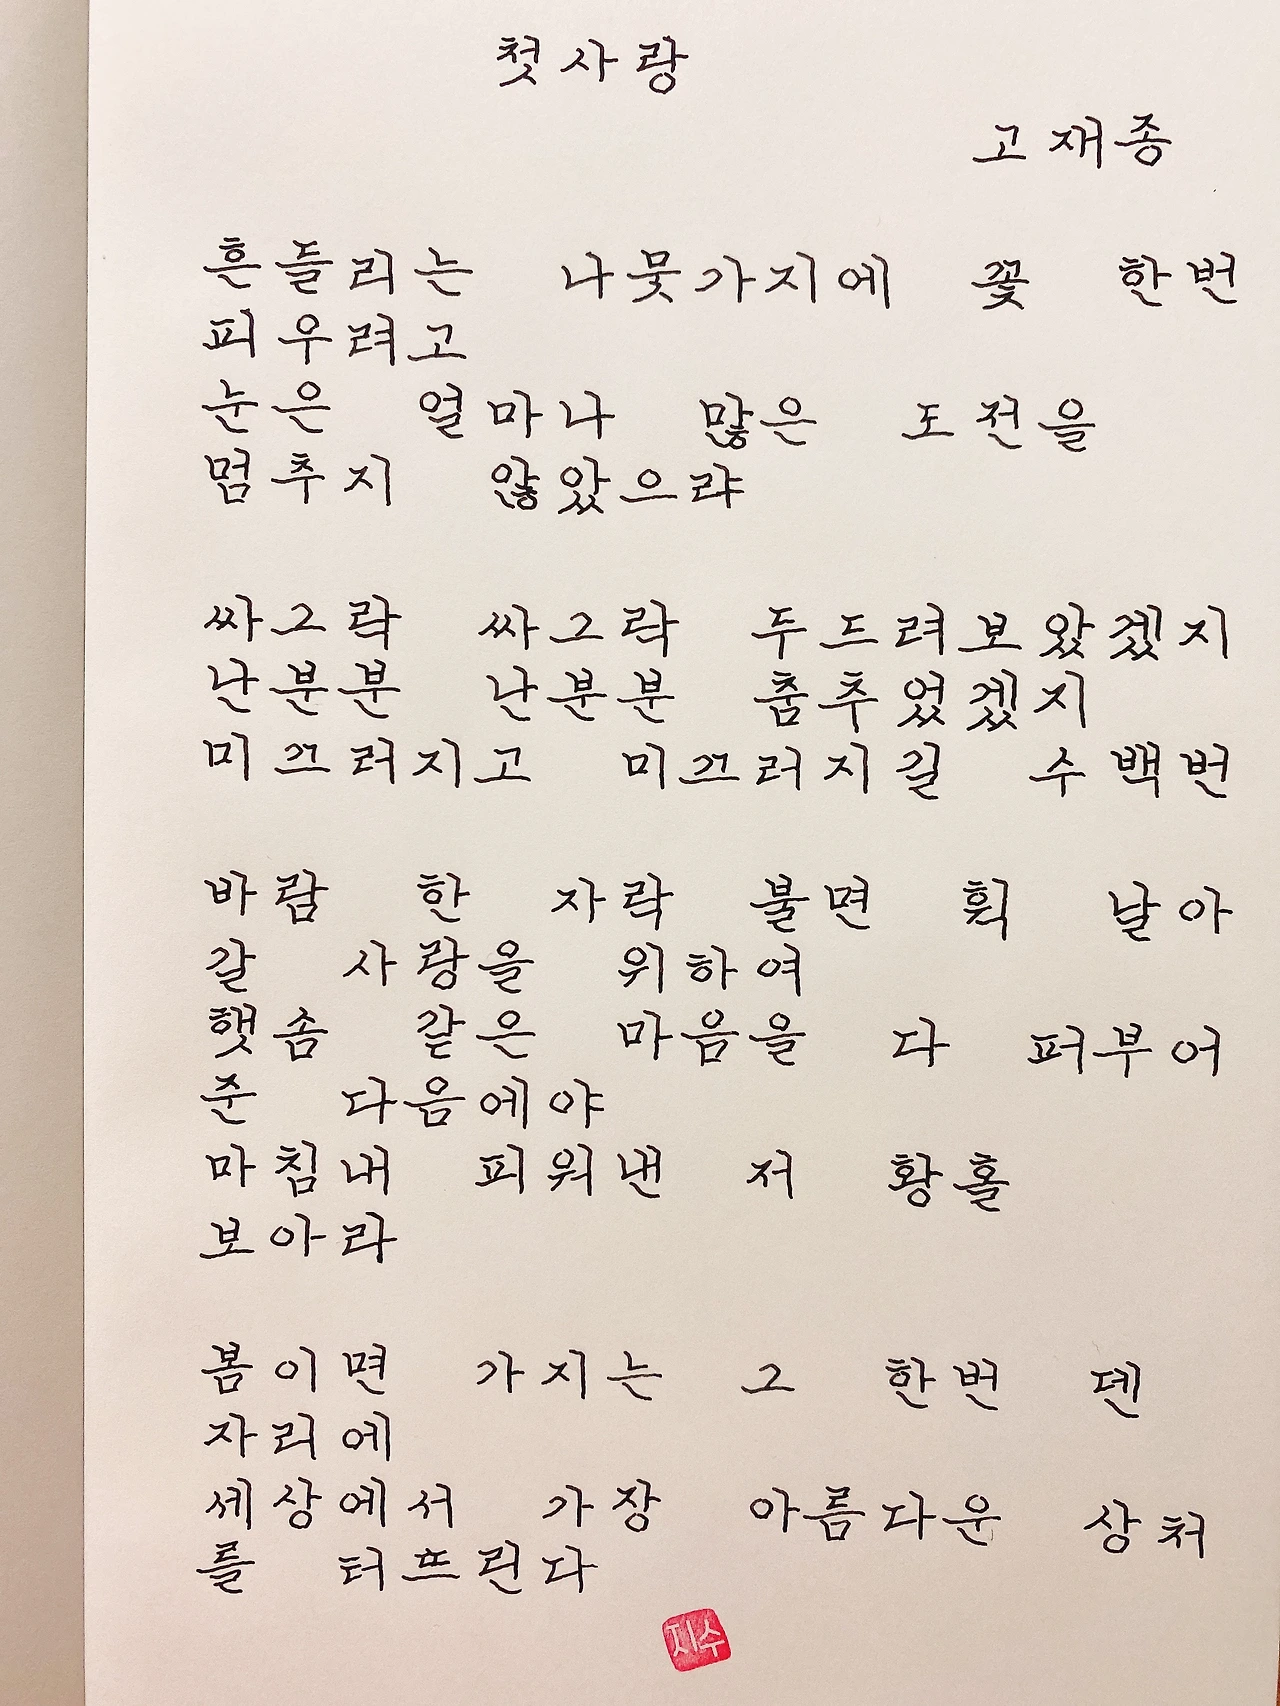 첫사랑
고재종
흔들리는 나뭇가지에 꽃 한번
피우려고
눈은 얼마나 많은 도전을
멈추지 않았으랴
싸그락 싸그락 두드려보았겠지
난분분 난분분 춤추었겠지
미끄러지고 미끄러지길 수백번
바람 한 자락 불면 휙 날아
갈 사랑을 위하여
햇솜 같은 마음을 다 퍼부어
준 다음에야
마침내 피워낸 저 황홀
보아라
봄이면 가지는 그 한번 덴
자리에
세상에서 가장 아름다운 상처
를 터뜨린다
지수